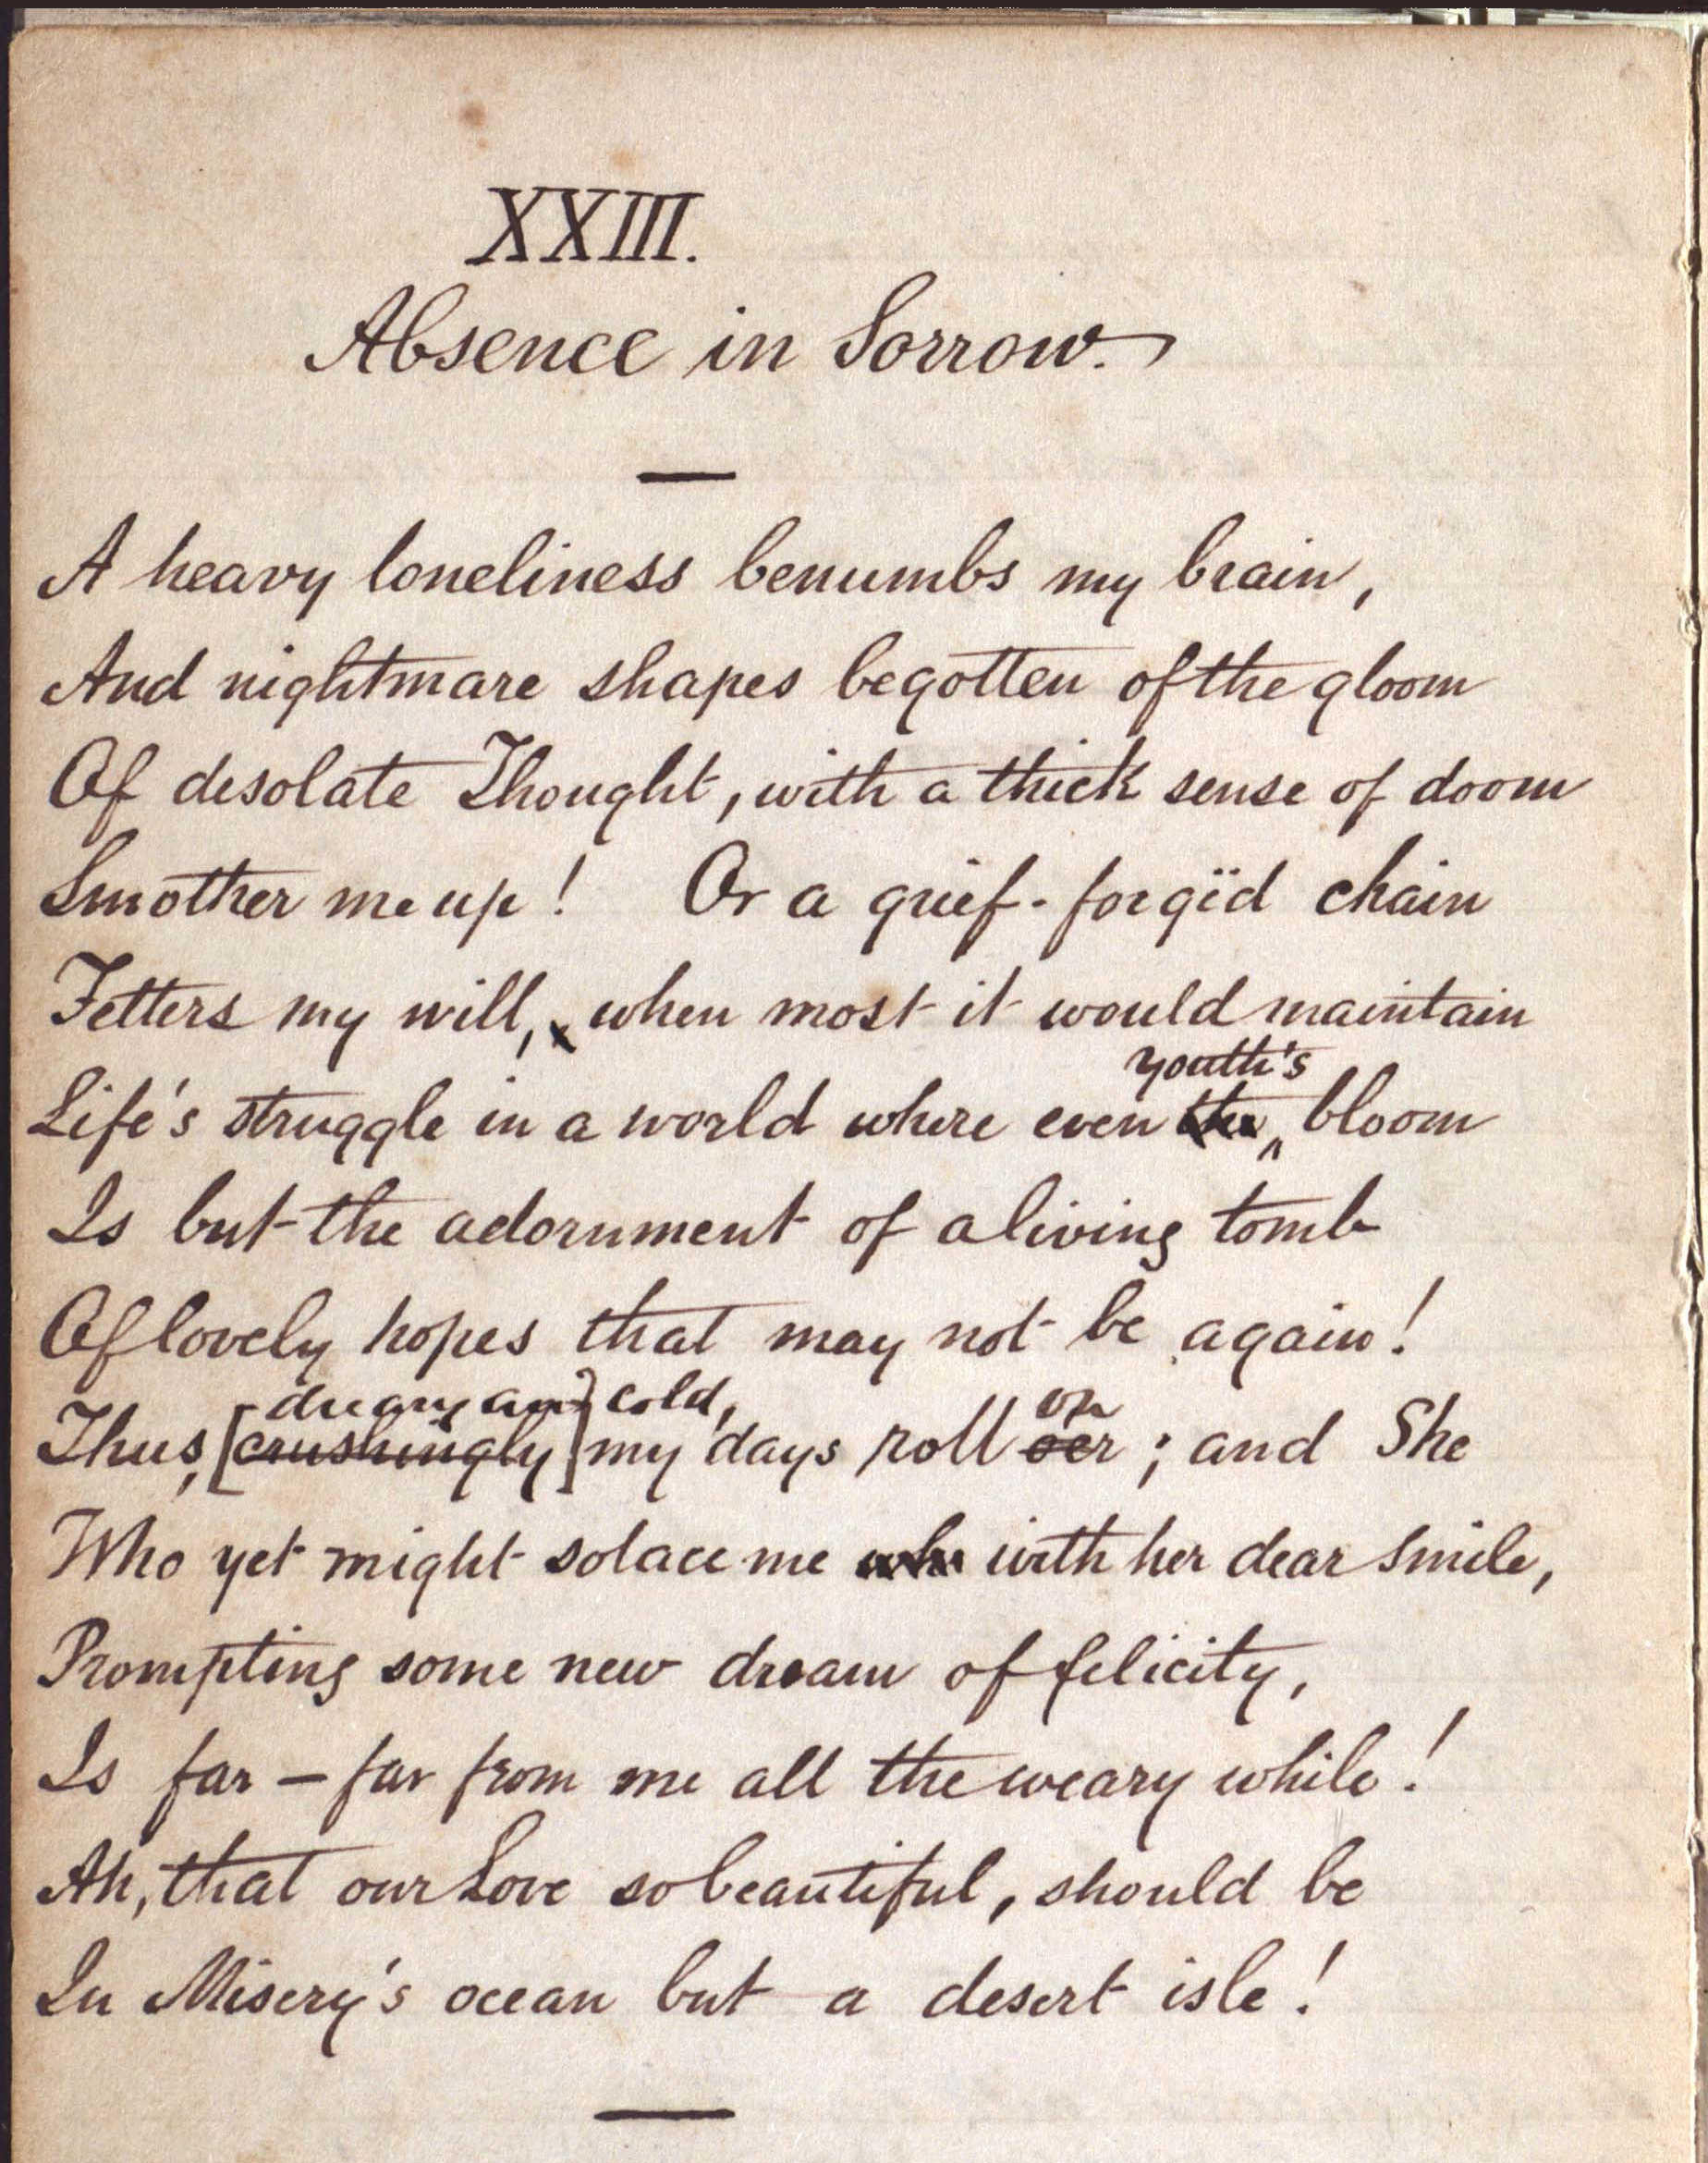 XXIII.
Absence in Sorrow.
A heavy loneliness benumbs my brain,
And nightmare shapes begotten of the gloom
Of desolate Thought, with a thick sense of doom
Smother me up! Or a grief-forgïd chain
Fetters my will, when most it would maintain
youth's
Life's struggle in a world where even the bloom
Is but the adornment of a living tomb
Of lovely hopes that may not be again!
dreary and cold, on
Thus, [crushingly] my days roll oer; and She
Who yet might solace me with her dear smile,
Prompting some new dream of felicity,
Is far – far from me all the weary while!
Ah, that our Love so beautiful, should be
In Misery's ocean but a desert isle!